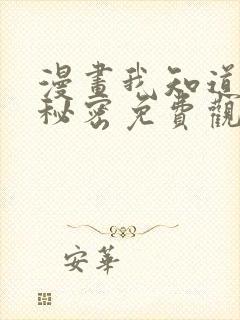 漫畫我知道
秘密免費觀
安華